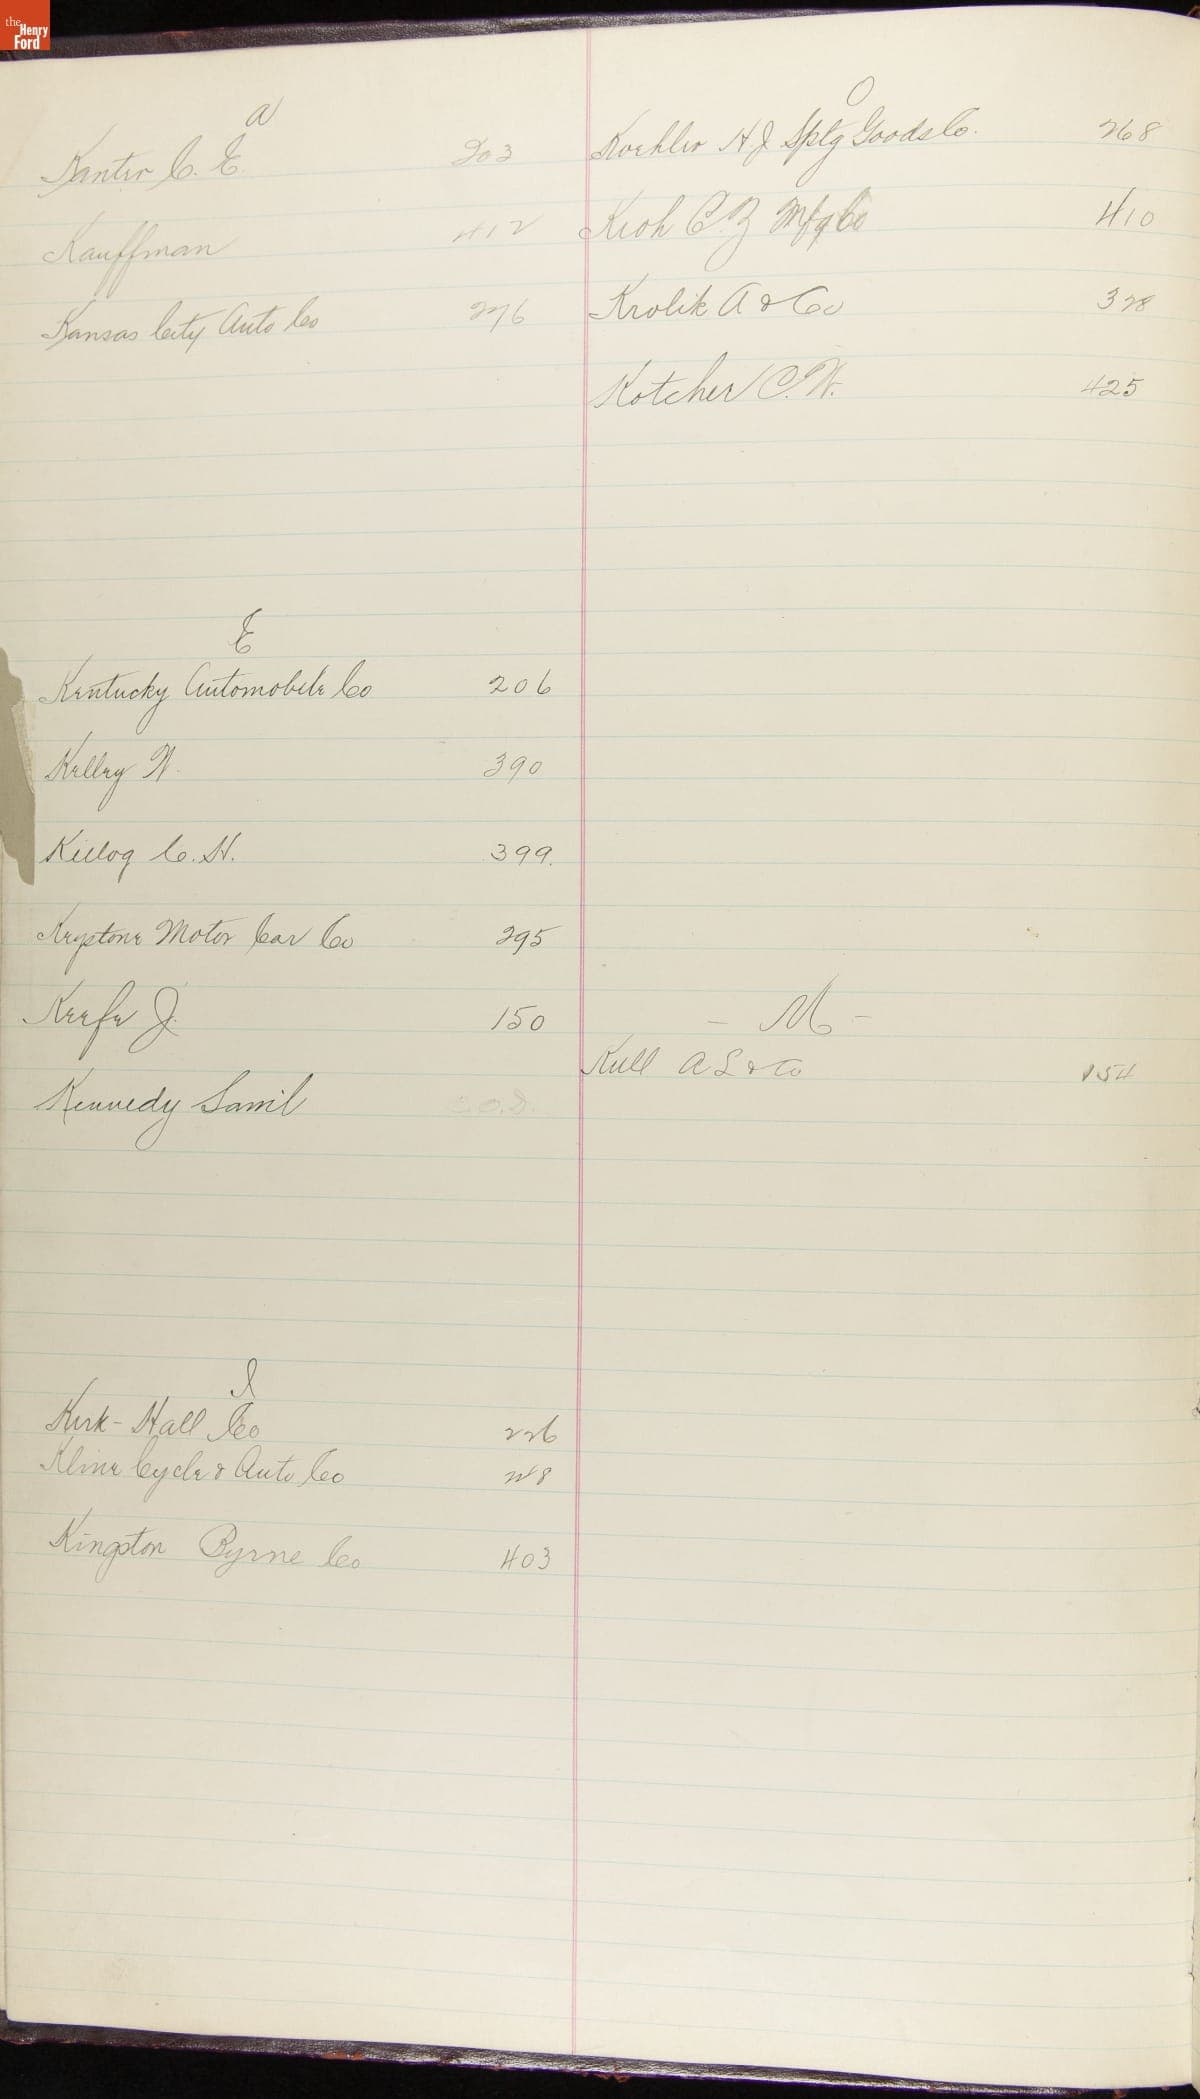 the Henry Ford
a
Kanter C. E. 203
Kauffman 412
Kansas City Auto Co 276
E
Kentucky Automobile Co 206
Kelley W. 390
Kellog C. H. 399.
Keystone Motor Car Co 295
Keefe J. 150
Kennedy Saml C.O.D.
I
Kirk-Hall Co 226
Kline Cycle & Auto Co
Kingston Byrne Co 403
O
Koehler H. J. Sptg Goods Co. 268
Kroh C. Z Mfg Co 410
Krolik A & Co 328
Kotcher C. W. 425
- M -
Kull A L & Co 154